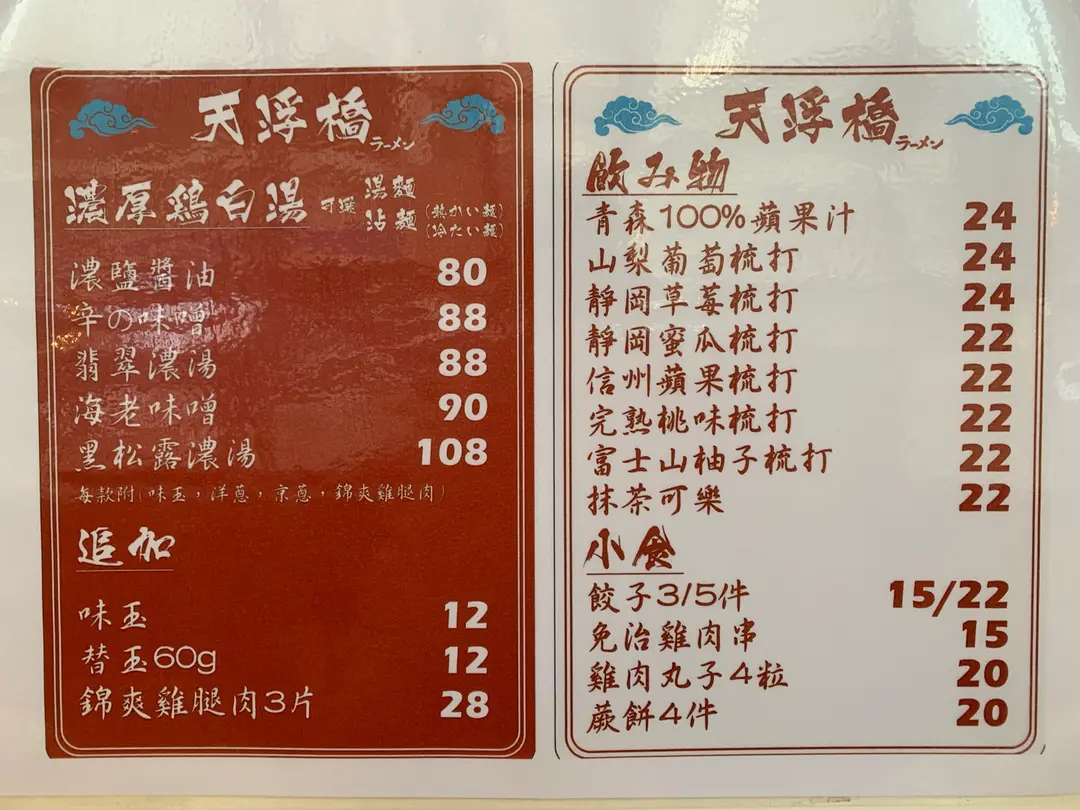 天浮橋
ラーメン
濃厚鶏白湯 可選 湯麵 (熱かい麵)
沾麵 (冷たい麵)
濃鹽醬油 80
辛の味噌 88
翡翠濃湯 88
海老味噌 90
黑松露濃湯 108
每款附(味玉，洋蔥，京蔥，錦爽雞腿肉)
追加
味玉 12
替玉60g 12
錦爽雞腿肉3片 28
天浮橋
ラーメン
飲み物
青森100%蘋果汁 24
山梨葡萄梳打 24
靜岡草莓梳打 24
靜岡蜜瓜梳打 22
信州蘋果梳打 22
完熟桃味梳打 22
富士山柚子梳打 22
抹茶可樂 22
小食
餃子3/5件 15/22
免治雞肉串 15
雞肉丸子4粒 20
蕨餅4件 20